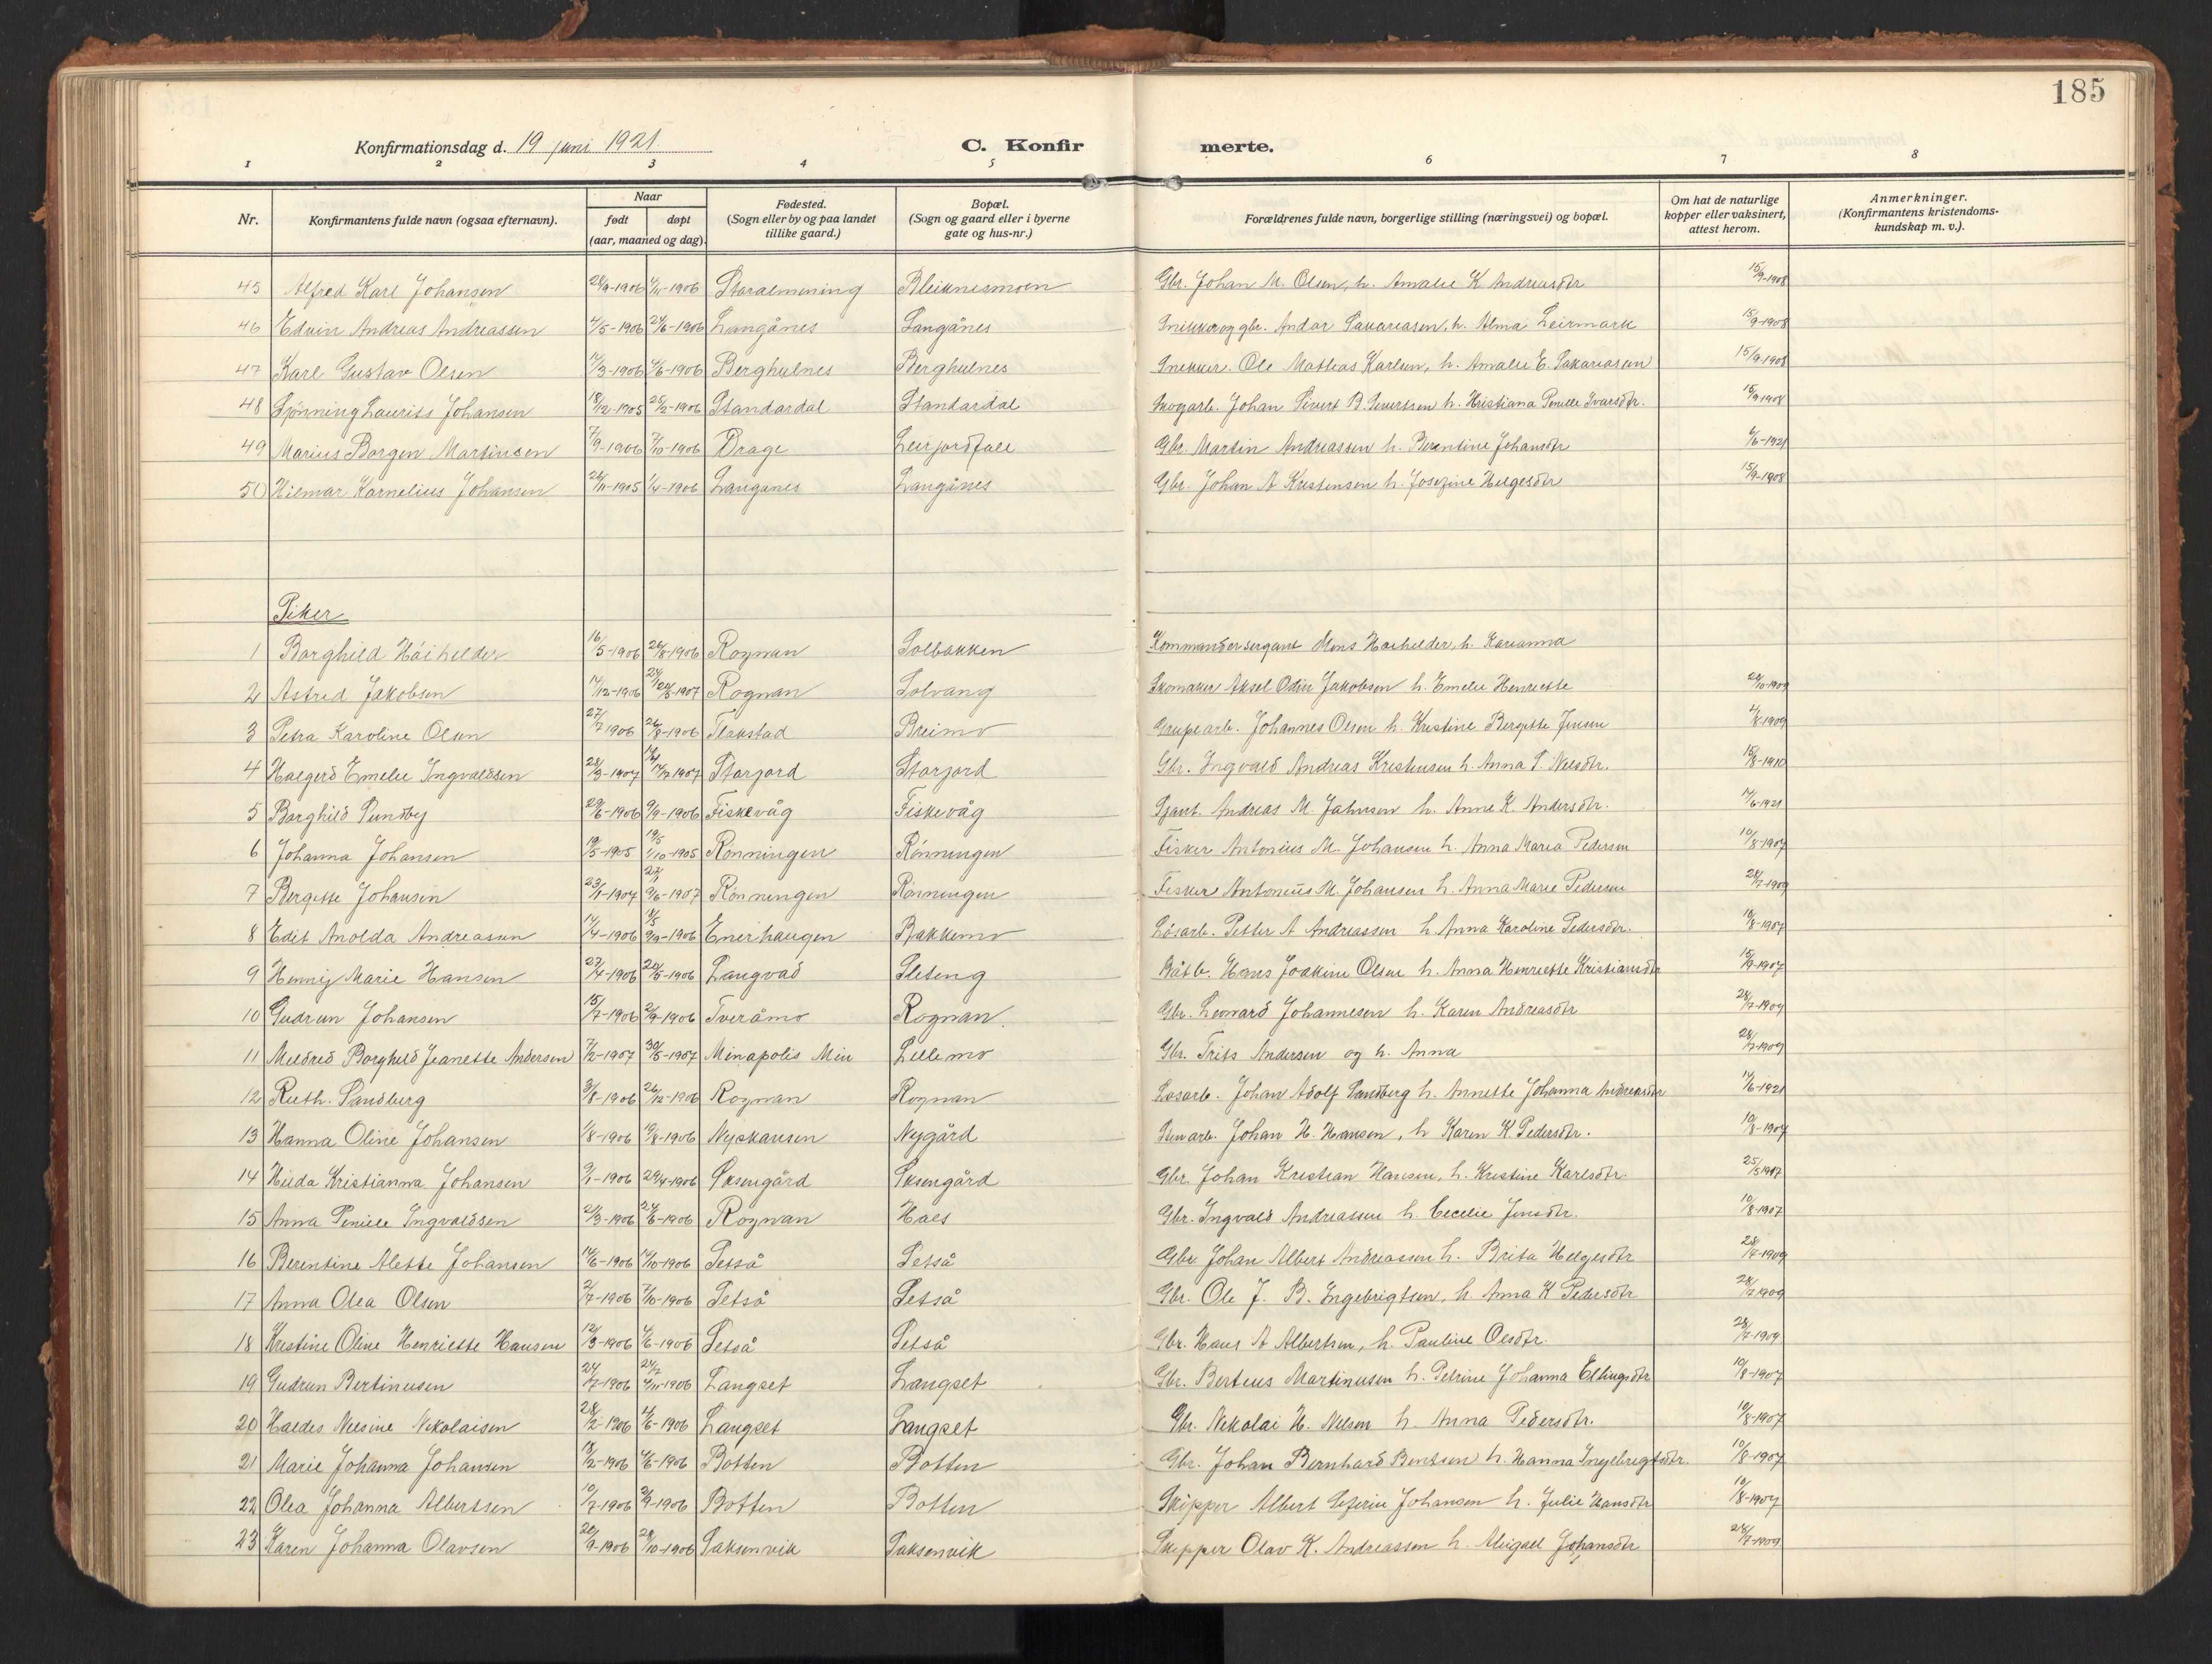 185
Konfirmationsdag d. 19 juni 1921.
C. Konfir merte.
1 2 3 4 5 6 7 8
Nr. Konfirmantens fulde navn (ogsaa efternavn). Naar født døpt (aar, maaned og dag). Fødested. (Sogn eller by og paa landet tillike gaard.) Bopæl. (Sogn og gaard eller i byerne gate og hus-nr.) Forældrenes fulde navn, borgerlige stilling (næringsvei) og bopæl. Om hat de naturlige kopper eller vaksinert, attest herom. Anmerkninger. (Konfirmantens kristendoms-kundskap m. v.).
45 Alfred Karl Johansen 28/9-1906 4/11-1906 Storalmening Bleiknesmoen Gbr. Johan M. Olsen, h. Amalie K Andreasdtr 15/9-1908
46 Edvin Andreas Andreassen 4/5-1906 24/6-1906 Langånes Langånes Snikker og gbr. Andor Sakariasen, h. Alma Leirmark 15/9-1908
47 Karl Gustav Olsen 17/3-1906 4/6-1906 Berghulnes Berghulnes Snekker. Ole Mathias Karlsen, h. Amalie E. Sakariasen 15/9-1908
48 Hjønning Laurits Johansen 18/12-1905 25/2-1906 Standardal Standardal Skogarb. Johan Sivert B. Sivertsen h. Kristiana Pernille Ivarsdtr. 15/9-1908
49 Marius Borgen Martinsen 7/9-1906 7/10-1906 Drage Leirjordfall Gbr. Martin Andreassen h. Berentine Johansdtr 6/6-1921
50 Hilmar Kornelius Johansen 26/11-1905 1/4-1906 Langånes Langånes Gbr. Johan A Kristensen h. Josefine Helgesdtr 15/9-1908
Piker
1 Borghild Høiholder 16/5-1906 26/8-1906 Rognan Solbakken Kommandersergant Mons Hoeholder, h. Karianna
2 Astrid Jakobsen 14/12-1906 -1907 Rognan Solvang Skomaker Aksel Odin Jakobsen h. Emelie Henriette 28/10-1909
3 Petra Karoline Olsen 27/7 1906 26/8-1906 Flakstad Breimo Grupearb. Johannes Olsen h. Kristine Bergitte Jensen 4/8-1909
4 Halgerd Emelie Ingvaldsen 28/9-1907 1907 Storjord Storjord Gbr. Ingvald Andreas Kristensen h. Anna P. Nilsdtr. 15/8-1910
5 Borghild Sundby 29/6-1906 9/9-1906 Fiskevåg Fiskevåg Sjant. Andreas M. Jahnsen h. Anne K. Andersdtr. 17/6-1921
6 Johanna Johansen 19/5-1905 1/10-1905 Rønningen Rønningen Fisker Antonius M. Johansen h. Anna Maria Pedersen 10/8-1907
7 Bergitte Johansen 23/1-1907 9/6-1907 Rønningen Rønningen Fisker Antonius M. Johansen h. Anna Marie Pedersen 28/7-1909
8 Edit Anolda Andreasen 14/4-1906 9/9-1906 Enerhaugen Bakkemo Løsarb. Petter A Andreassen h. Anna Karoline Pedersdtr. 10/8-1907
9 Henny Marie Hansen 27/4-1906 24/5-1906 Langvad Sleteng Båtb. Hans Joakim Olsen h. Anna Henriette Kristiansdtr 15/9-1907
10 Gudrun Johansen 15/7-1906 2/9-1906 Tveråmo Rognan. Gbr. Leonard Johannesen h. Karen Andreasdtr 28/7-1909
11 Mildred Borghild Jeanette Andersen 7/2-1907 30/5-1907 Minapolis Min Lillemo Gbr. Frits Andersen og h. Anna 28/7-1909
12 Ruth. Sandberg 3/8-1906 26/12-1906 Rognan Rognan Løsarb. Johan Adolf Sandberg h. Annette Johanna Andreasdtr 17/6-1921
13 Hanna Oline Johansen 1/8-1906 19/8-1906 Nyskansen Nygård Stenarb. Johan H. Hansen, h Karen K. Pedersdtr. 10/8-1907
14 Hilda Kristianna Johansen 9/1-1906 29/4-1906 Saksengård Saksengård Gbr. Johan Kristian Hansen, h. Kristine Karlsdtr. 25/5 1907
15 Anna Pernille Ingvaldsen 21/3-1906 24/6-1906 Rognan Hals Gbr. Ingvald Andreassen h. Cecilie Jensdtr. 10/8-1907
16 Berentine Alette Johansen 14/6-1906 14/10-1906 Setså Setså Gbr Johan Albert Andreassen h. Brita Helgesdtr 28/7-1909
17 Anna Olea Olsen 2/7-1906 7/10-1906 Setså Setså Gbr. Ole J. B. Ingebrigtsen, h. Anna K Pedersdtr 28/7 1909
18 Kristine Oline Henriette Hansen 12/3-1906 4/6-1906 Setså Setså Gbr. Hans A Albertsen, h. Pauline Olsdtr. 28/7-1909
19 Gudrun Bertinusen 24/7-1906 4/11-1906 Langset Langset Gbr. Berteus Martinusen h. Petrine Johanna Ellingsdtr 10/8-1907
20 Haldis Nilsine Nikolaisen 28/2-1906 4/6-1906 Langset Langset Gbr. Nikolai H. Nilsen h. Anna Pedersdtr. 10/8-1907
21 Marie Johanna Johansen 18/2-1906 4/6-1906 Botten Botten Gbr. Johan Bernhard Bentsen h. Hanna Ingebrigtsdtr. 10/8-1907
22 Olea Johanna Albertsen 10/7-1906 2/9-1906 Botten Botten Skipper Albert Johansen h. Julie Hansdtr 10/8-1907
23 Karen Johanna Olavsen 20/9-1906 28/10-1906 Saksenvik Saksenvik Skipper Olav K. Andreassen h. Abigael Johansdtr 28/7-1909